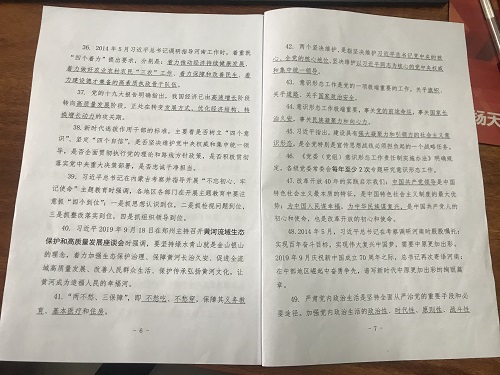 36. 2014年5月习近平总书记调研指导河南工作时,着重就
"四个着力"提出要求,分别是:着力推动经济持续健康发展、
着力做好农业农村农民"三农"工作、着力保障和改善民生、着
力建设德才兼备的高素质执政骨干队伍。
37. 党的十九大报告明确指出,我国经济已由高速增长阶段
转向高质量发展阶段,正处在转变发展方式、优化经济结构、转
换增长动力的攻关期。
38. 新时代选拔作用干部的标准,主要看是否树立"四个意
识"、坚定"四个自信",是否坚决维护党中央权威和集中统一领
导,是否全面贯彻执行党的理论和路线方针政策,是否积极贯彻
落实党中央重大决策部署,是否忠诚干净担当。
39. 习近平总书记在内蒙古考察并指导开展"不忘初心、牢
记使命"主题教育时强调,各地区各部门在开展主题教育中要注
意抓"四个到位":一是抓思想认识到位,二是抓检视问题到位,
三是抓整改落实到位,四是抓组织领导到位。
40. 习近平2019年9月18日在郑州主持召开黄河流域生态
保护和高质量发展座谈会时强调,要坚持绿水青山就是金山银山
的理念,着力加强生态保护治理、保障黄河长治久安、促进全流
域高质量发展、改善人民群众生活、保护传承弘扬黄河文化,让
黄河成为造福人民的幸福河。
41. "两不愁、三保障",即 不愁吃、不愁穿,保障其义务教
育、基本医疗和住房。
- 6 -
42. 两个坚决维护,是指坚决维护习近平总书记党中央的核
心、全党的核心地位,坚决维护以习近平同志为核心的党中央权威
和集中统一领导。
43. 意识形态工作是党的一项极端重要的工作,关乎旗帜、
关乎道路、关乎国家政治安全。
44. 意识形态工作极端重要,事关党的前途命运,事关国家长
治久安,事关民族凝聚力和向心力。
45. 习近平指出,建设具有强大凝聚力和引领力的社会主义意
识形态,是全党特别是宣传思想战线必须担负起的一个战略任务。
46. 《党委(党组)意识形态工作责任制实施办法》明确规
定,各级党委常委会每年至少2次专题研究意识形态工作。
47. 改革开放40年的实践启示我们:中国共产党领导是中国
特色社会主义最本质的特征,是中国特色社会主义制度的最大优
势;为中国人民谋幸福,为中华民族谋复兴,是中国共产党人的
初心和使命,也是改革开放的初心和使命。
48. 2014年5月,习近平总书记在考察调研河南时殷殷嘱托:
实现百年奋斗目标,实现伟大复兴中国梦,需要中原更加出彩。
2019年9月庆祝新中国成立70周年之际,总书记再次寄语河南:
在中部崛起中奋勇争先,谱写新时代中原更加出彩的绚丽篇
章。
49. 严肃党内政治生活是坚持全面从严治党的重要手段和必
要途径。加强党内政治生活的政治性、时代性、原则性、战斗性
- 7 -
杨天